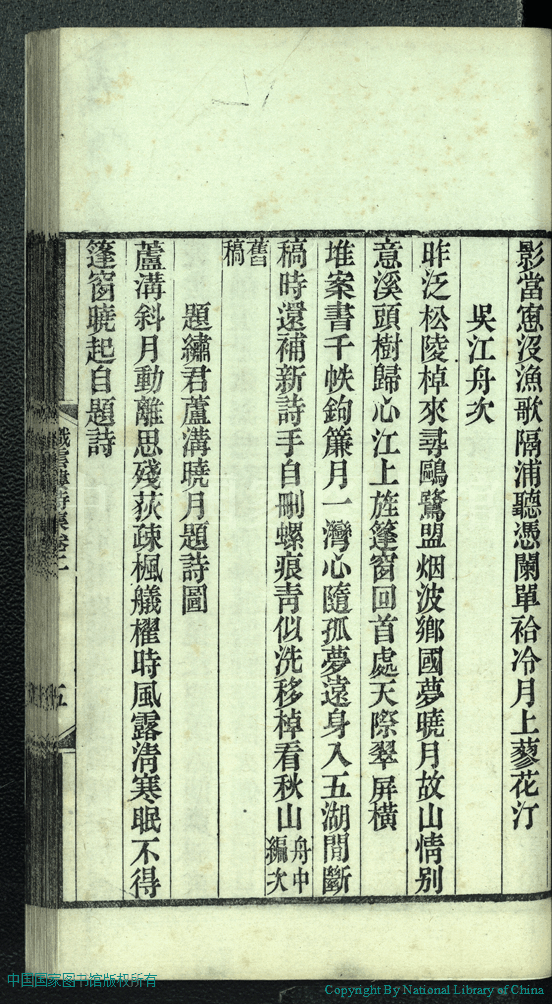 影當窻沒漁歌隔浦聽憑闌單袷冷月上蓼花汀
吳江舟次
昨泛松陵棹來尋鷗鷺盟烟波鄉國夢曉月故山情別
意溪頭樹歸心江上旌篷窗回首處天際翠屏橫
堆案書千帙鉤簾月一灣心隨孤夢遠身入五湖閒斷
稿時還補新詩手自刪螺痕靑似洗移棹看秋山舟中
編次
舊
稿
題繡君蘆溝曉月題詩圖
蘆溝斜月動離思殘荻疎楓艤櫂時風露淸寒眠不得
篷窗曉起自題詩
五
中国国家图书馆版权所有
Copyright By National Library of China